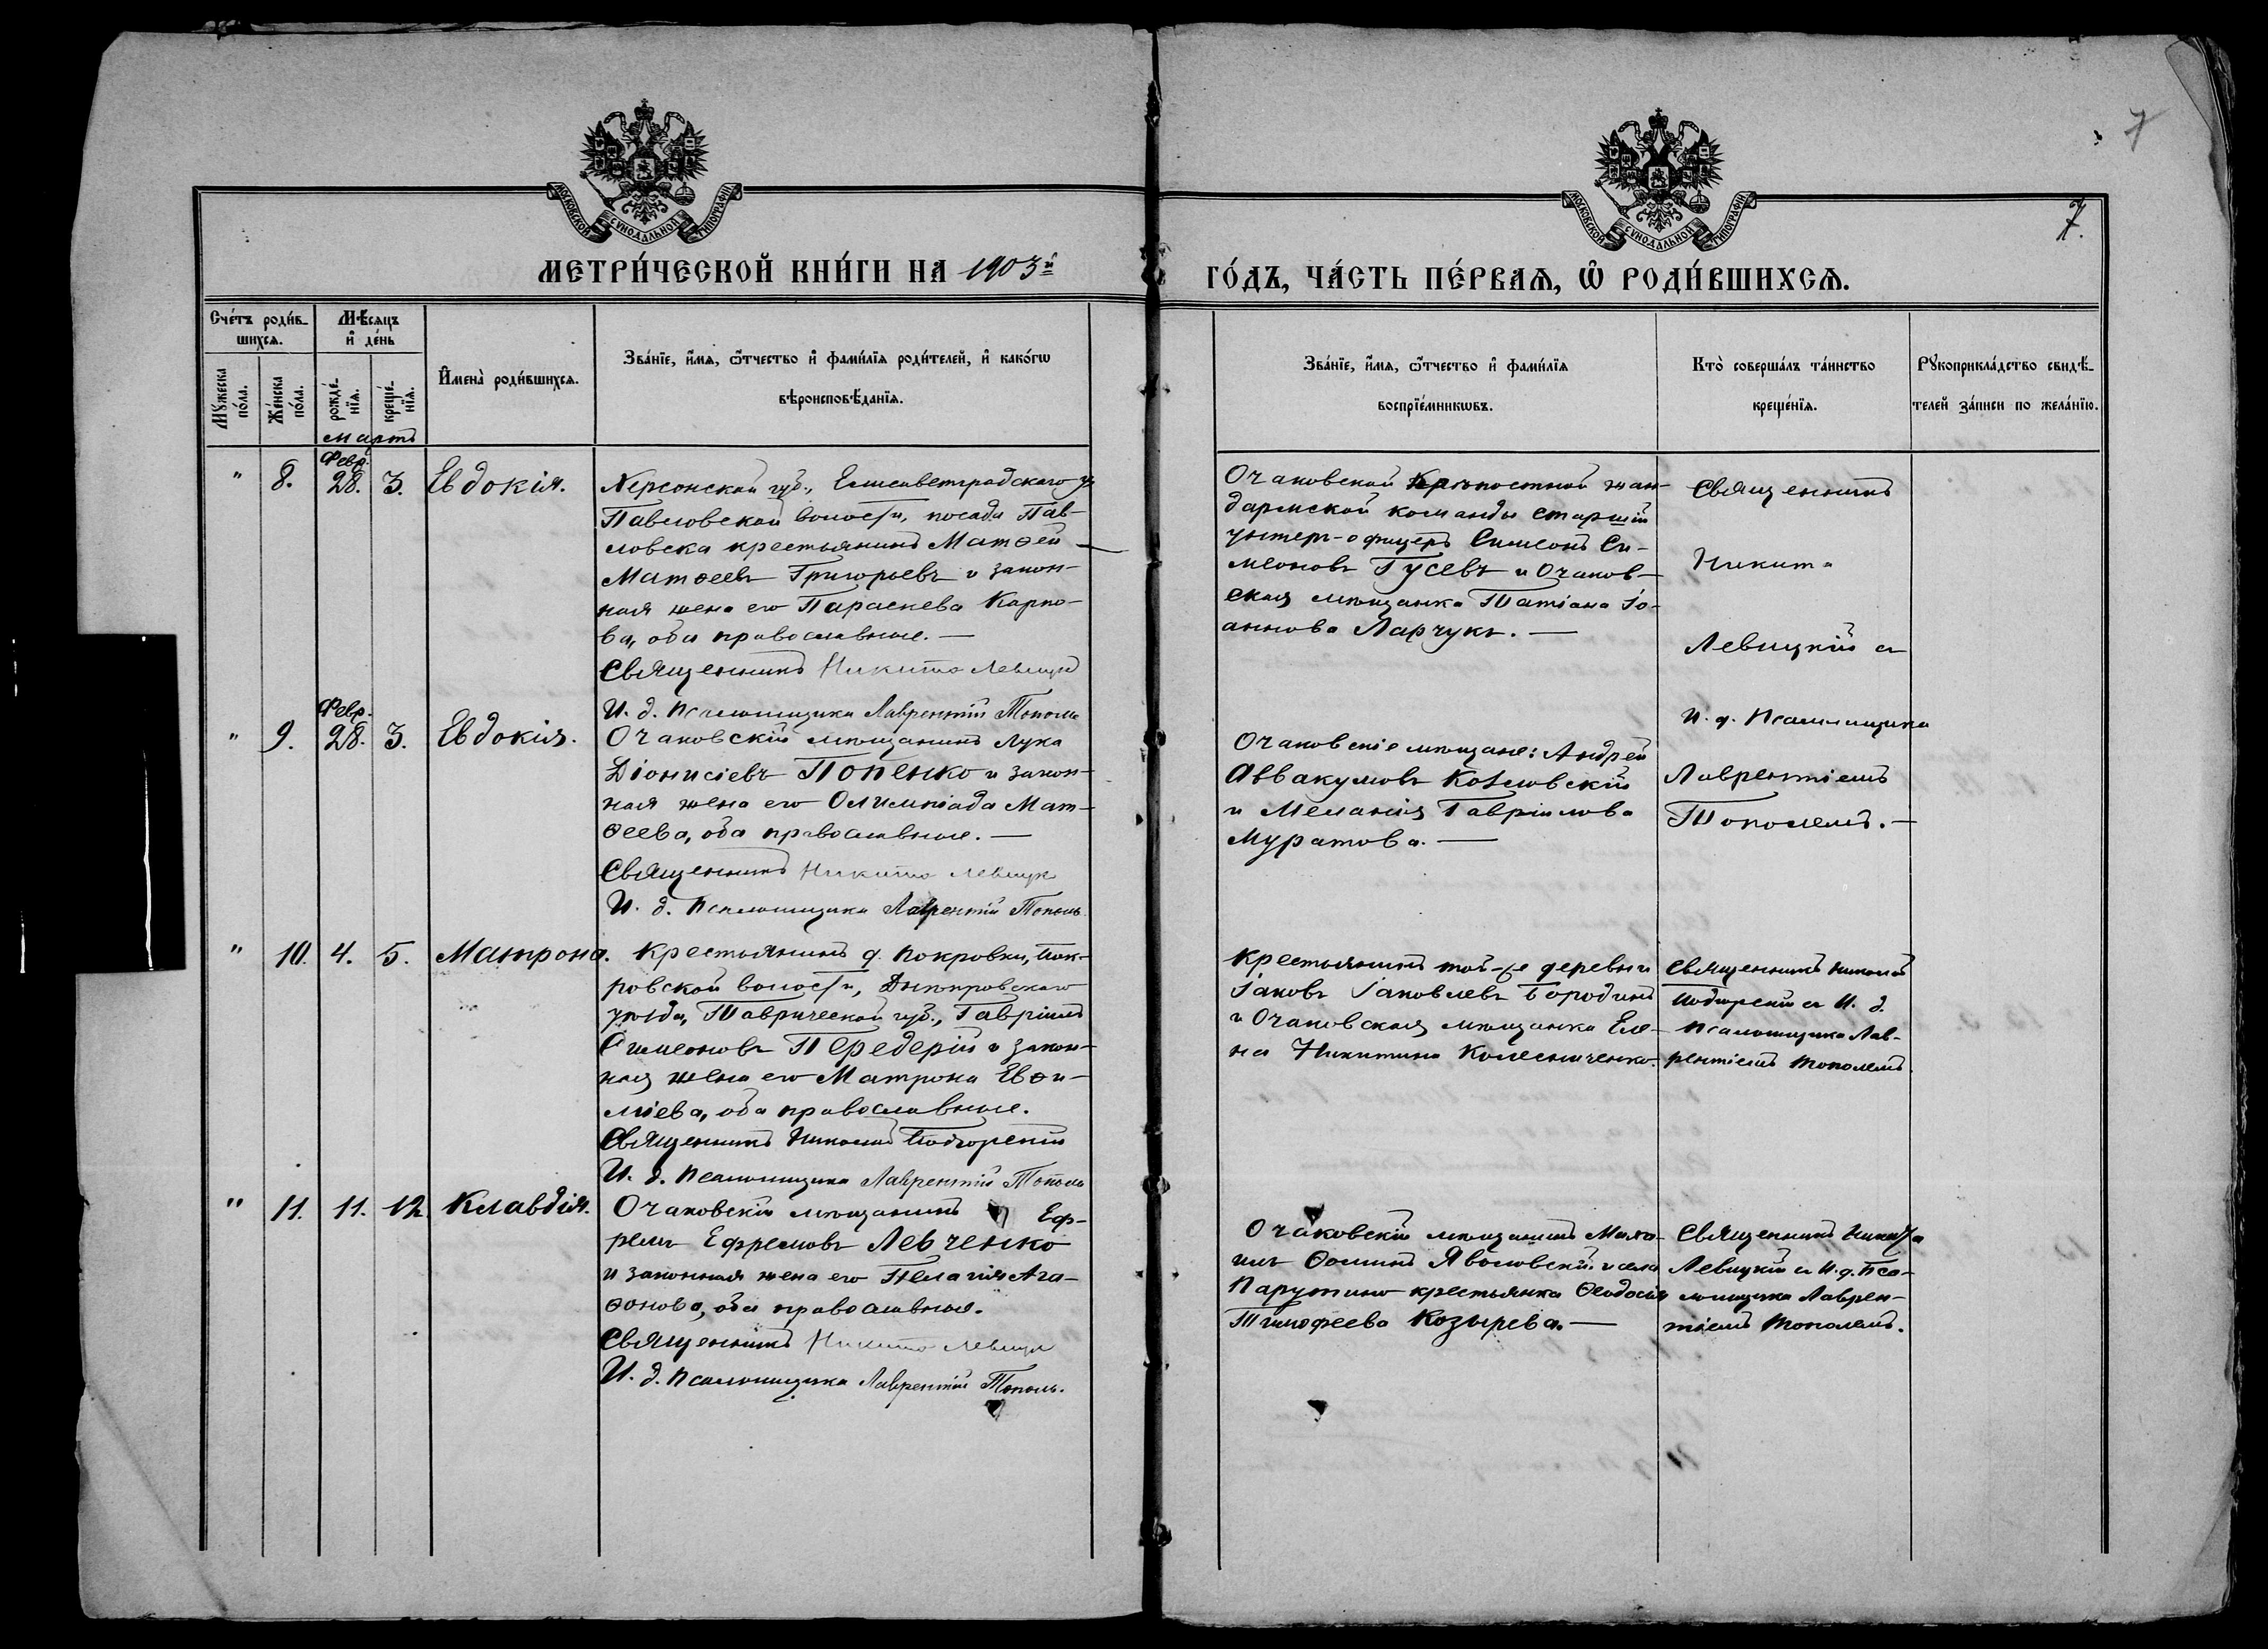 7
7.
МОСКОВСКОЙ СѴНОДАЛЬНОЙ ТИПОГРАФІИ
МОСКОВСКОЙ СѴНОДАЛЬНОЙ ТИПОГРАФІИ
МЕТРИ́ЧЕСКОЙ КНИ́ГИ НА 1903й
ГО́ДЪ, ЧА́СТЬ ПЕ́РВАѦ, Ѽ РОДИ́ВШИХСѦ.
Сче́тъ роди́в-
шихсѧ.
Мѣ́сѧцъ
и҆ де́нь
Мꙋ́жеска
по́ла.
Же́нска
по́ла.
рожде́-
нїѧ.
креще́-
нїѧ.
И҆мена̀ роди́вшихсѧ.
Зва́нїе, и҆́мѧ, ѻ҆́тчество и҆ фами́лїѧ роди́телей, и҆ како́гѡ
вѣроисповѣ́данїѧ.
Зва́нїе, и҆́мѧ, ѻ҆́тчество и҆ фами́лїѧ
воспрїе́мникѡвъ.
Кто̀ соверша́лъ та́инство
креще́нїѧ.
Рꙋкоприкла́дство свидѣ́-
телей за́писи по жела́нїю.
Мартъ
" 8. Февр. 28. 3. Евдокія.
Херсонской губ., Елисаветградскаго у.
Павловской волости, посада Пав-
ловска крестьянинъ Матѳей
Матѳеевъ Григорьевъ и закон-
ная жена его Параскева Карпо-
ва, оба православные. —
Священникъ Никита Левицкій
И. д. Псаломщика Лаврентій Тополь
Очаковской крѣпостной жан-
дармской команды старшій
унтеръ-офицеръ Симеонъ Си-
меоновъ Гусевъ и Очаков-
ская мѣщанка Татіана Іо-
аннова Ларчукъ. —
Священникъ
Никита
Левицкій съ
И. д. Псаломщика
Лаврентіемъ
Тополемъ. —
" 9. Февр. 28. 3. Евдокія.
Очаковскій мѣщанинъ Лука
Діонисіевъ Попенко и закон-
ная жена его Олимпіада Мат-
ѳеева, оба православные. —
Священникъ Никита Левицкій
И. д. Псаломщика Лаврентій Тополь
Очаковскіе мѣщане: Андрей
Аввакумовъ Козловскій
и Меланія Гавріилова
Муратова. —
" 10. 4. 5. Матрона.
Крестьянинъ д. Покровки, Пок-
ровской волости, Днѣпровскаго
уѣзда, Таврической губ., Гавріилъ
Симеоновъ Передерій и закон-
ная жена его Матрона Евѳи-
міева, оба православные.
Священникъ Николай Подгорскій
И. д. Псаломщика Лаврентій Тополь
Крестьянинъ той-же деревни
Іаковъ Іаковлевъ Бородинъ
и Очаковская мѣщанка Еле-
на Никитина Колесниченко.
Священникъ Николай
Подгорскій съ И. д.
Псаломщика Лав-
рентіемъ Тополемъ.
" 11. 11. 12. Клавдія.
Очаковскій мѣщанинъ Еф-
ремъ Ефремовъ Левченко
и законная жена его Пелагія Ага-
ѳонова, оба православные.
Священникъ Никита Левицкій
И. д. Псаломщика Лаврентій Тополь.
Очаковскій мѣщанинъ Миха-
илъ Ѳоминъ Яволовскій и села
Парутино крестьянка Ѳеодосія
Тимофеева Козырева. —
Священникъ Никита
Левицкій съ И. д. Пса-
ломщика Лаврен-
тіемъ Тополемъ.